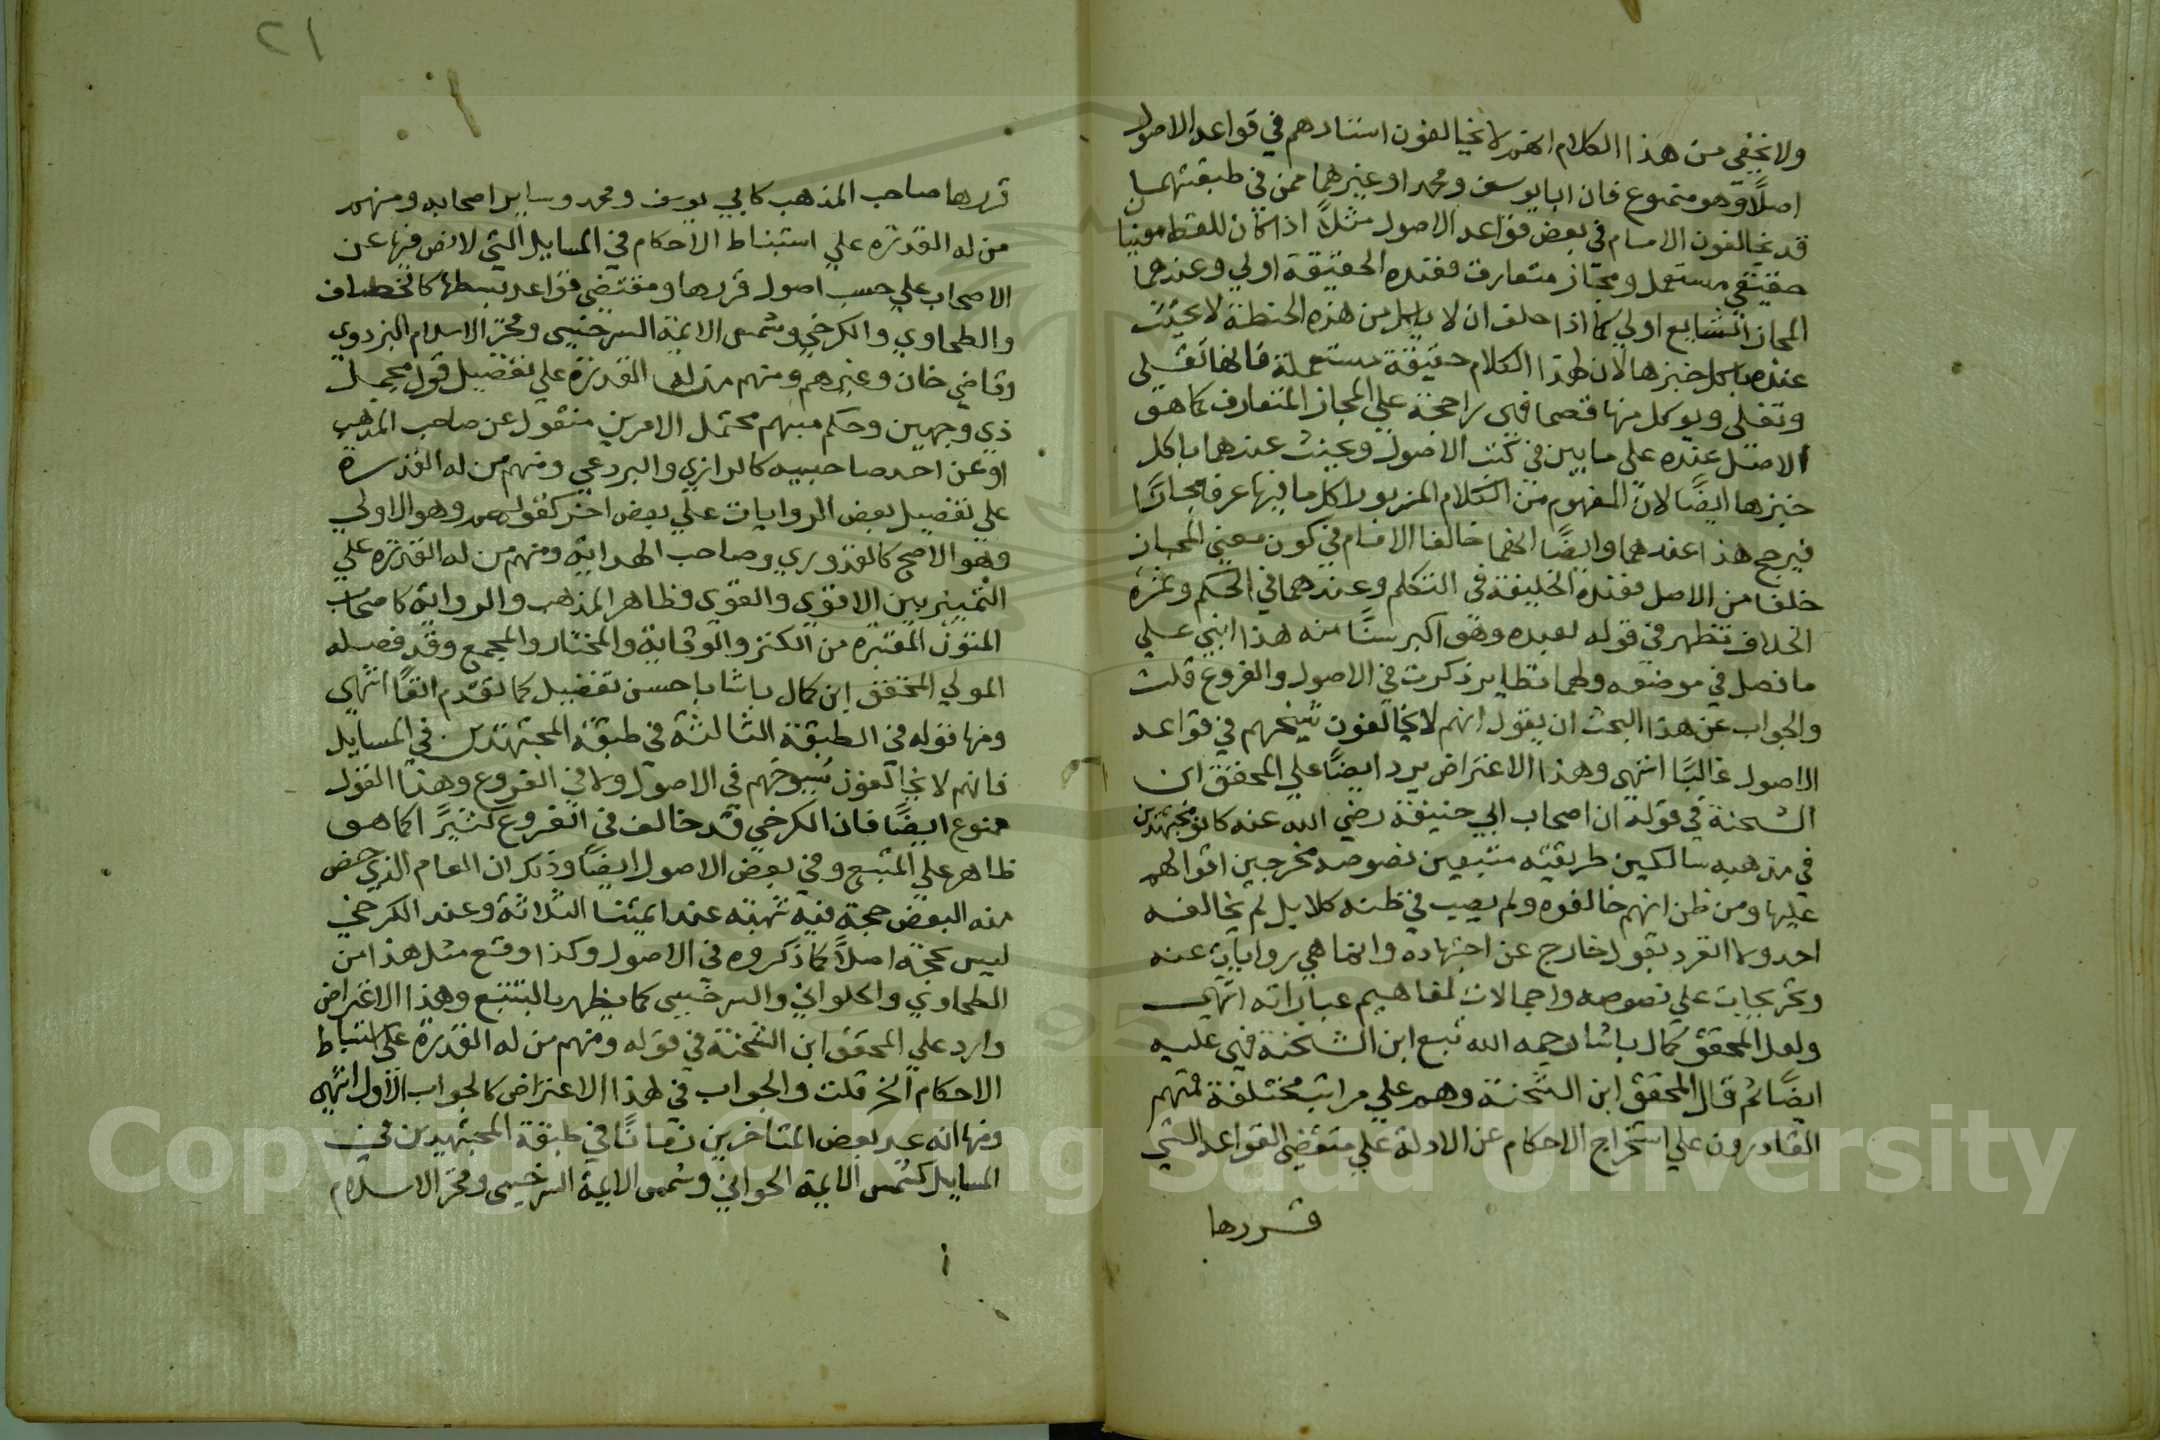 ولا يخفى من هذا الكلام انهم لا يخالفون استنادهم في قواعد الاصول
اصلاً وهو ممنوع فان ابا يوسف ومحمد او غيرهما ممن في طبقتهما
قد يخالفون الامام في بعض قواعد الاصول مثلاً اذا كان للفظ معنيا
حقيقي مستعمل ومجاز متعارف فعنده الحقيقة اولي وعندهما
المجاز الشايع اولي كما اذا حلف ان لا ياكل من هذه الحنطة لا يحنث
عنده باكل خبزها لان لهذا الكلام حقيقة مستعملة فانها تقلى
وتغلى ويوكل منها قضما فهي راجحة علي المجاز المتعارف كما هو
الاصل عنده علي ما بين في كتب الاصول ويحنث عندهما باكل
خبزها ايضًا لان المفهوم من الكلام المزبور اكل ما فيها عرفا مجازًا
فيرجح هذا عندهما وايضًا انهما خالفا الامام في كون معني المجاز
خلفا من الاصل فعنده الخليفة في التكلم وعندهما في الحكم وثمرة
الخلاف تظهر في قوله لعبده وهو اكبر سنًا منه هذا ابني علي
ما فصل في موضعه ولهما نظاير ذكرت في الاصول والفروع قلت
والجواب عن هذا البحث ان يقول انهم لا يخالفون شيخهم في قواعد
الاصول غالبًا انتهي وهذا الاعتراض يرد ايضًا علي المحقق ابن
الشحنة في قوله ان اصحاب ابي حنيفة رضي الله عنه كانو مجتهدين
في مذهبه سالكين طريقته متبعين نصوصه مخرجين اقوالهم
عليها ومن ظن انهم خالفوه ولم يصب في ظنه كلا بل لم يخالفه
احد ولا انفرد بقول خارج عن اجتهاده وانما هي روايات عنه
وتخريجات علي نصوصه واحمالات لمفاهيم عباراته انتهي
ولعل المحقق كمال باشا رحمه الله تبع ابن الشحنة فهي عليه
ايضًا ثم قال المحقق ابن الشحنة وهم علي مراتب مختلفة فمنهم
القادرون علي استخراج الاحكام عن الادلة علي مقتضي القواعد التي
قررها
٢١
قررها صاحب المذهب كابي يوسف ومحمد وساير اصحابه ومنهم
من له القدرة علي استنباط الاحكام في المسايل التي لا نص فيها عن
الاصحاب علي حسب اصول قررها ومقتضي قواعد بسطها كالخصاف
والطحاوي والكرخي وشمس الايمة السرخسي وفخر الاسلام البزدوي
وقاضي خان وغيرهم ومنهم من له القدرة علي تفصيل قول مجمل
ذي وجهين وحكم مبهم محتمل الامرين منقول عن صاحب المذهب
او عن احد صاحبيه كالرازي والبردعي ومنهم من له القدرة
علي تفضيل بعض الروايات علي بعض اخر كقولهم وهو الاولي
وهو الاصح كالقدوري وصاحب الهداية ومنهم من له القدرة علي
التمييز بين الاقوي والقوي وظاهر المذهب والرواية كاصحاب
المتون المعتبرة من الكنز والوقاية والمختار والمجمع وقد فصله
المولي المحقق ابن كمال باشا باحسن تفصيل كما تقدم انفًا انتهي
ومنها قوله في الطبقة الثالثة في طبقة المجتهدين في المسايل
فانهم لا يخالفون شيوخهم في الاصول ولا في الفروع وهذا القول
ممنوع ايضًا فان الكرخي قد خالف في الفروع كثيرًا كما هو
ظاهر علي المتتبع وفي بعض الاصول ايضًا وذكر ان العام الذي خص
منه البعض حجة فيه شبهة عند ايمتنا الثلاثة وعند الكرخي
ليس بحجة اصلاً كما ذكروه في الاصول وكذا وقع مثل هذا من
الطحاوي والحلواني والسرخسي كما يظهر بالتتبع وهذا الاعتراض
وارد علي المحقق ابن الشحنة في قوله ومنهم من له القدرة علي استنباط
الاحكام الخ قلت والجواب في هذا الاعتراض كالجواب الاول انتهي
ومنها انه عد بعض المتاخرين زمانًا في طبقة المجتهدين في
المسايل كشمس الايمة الحواني وشمس الايمة السرخسي وفخر الاسلام
Copyright © King Saud University